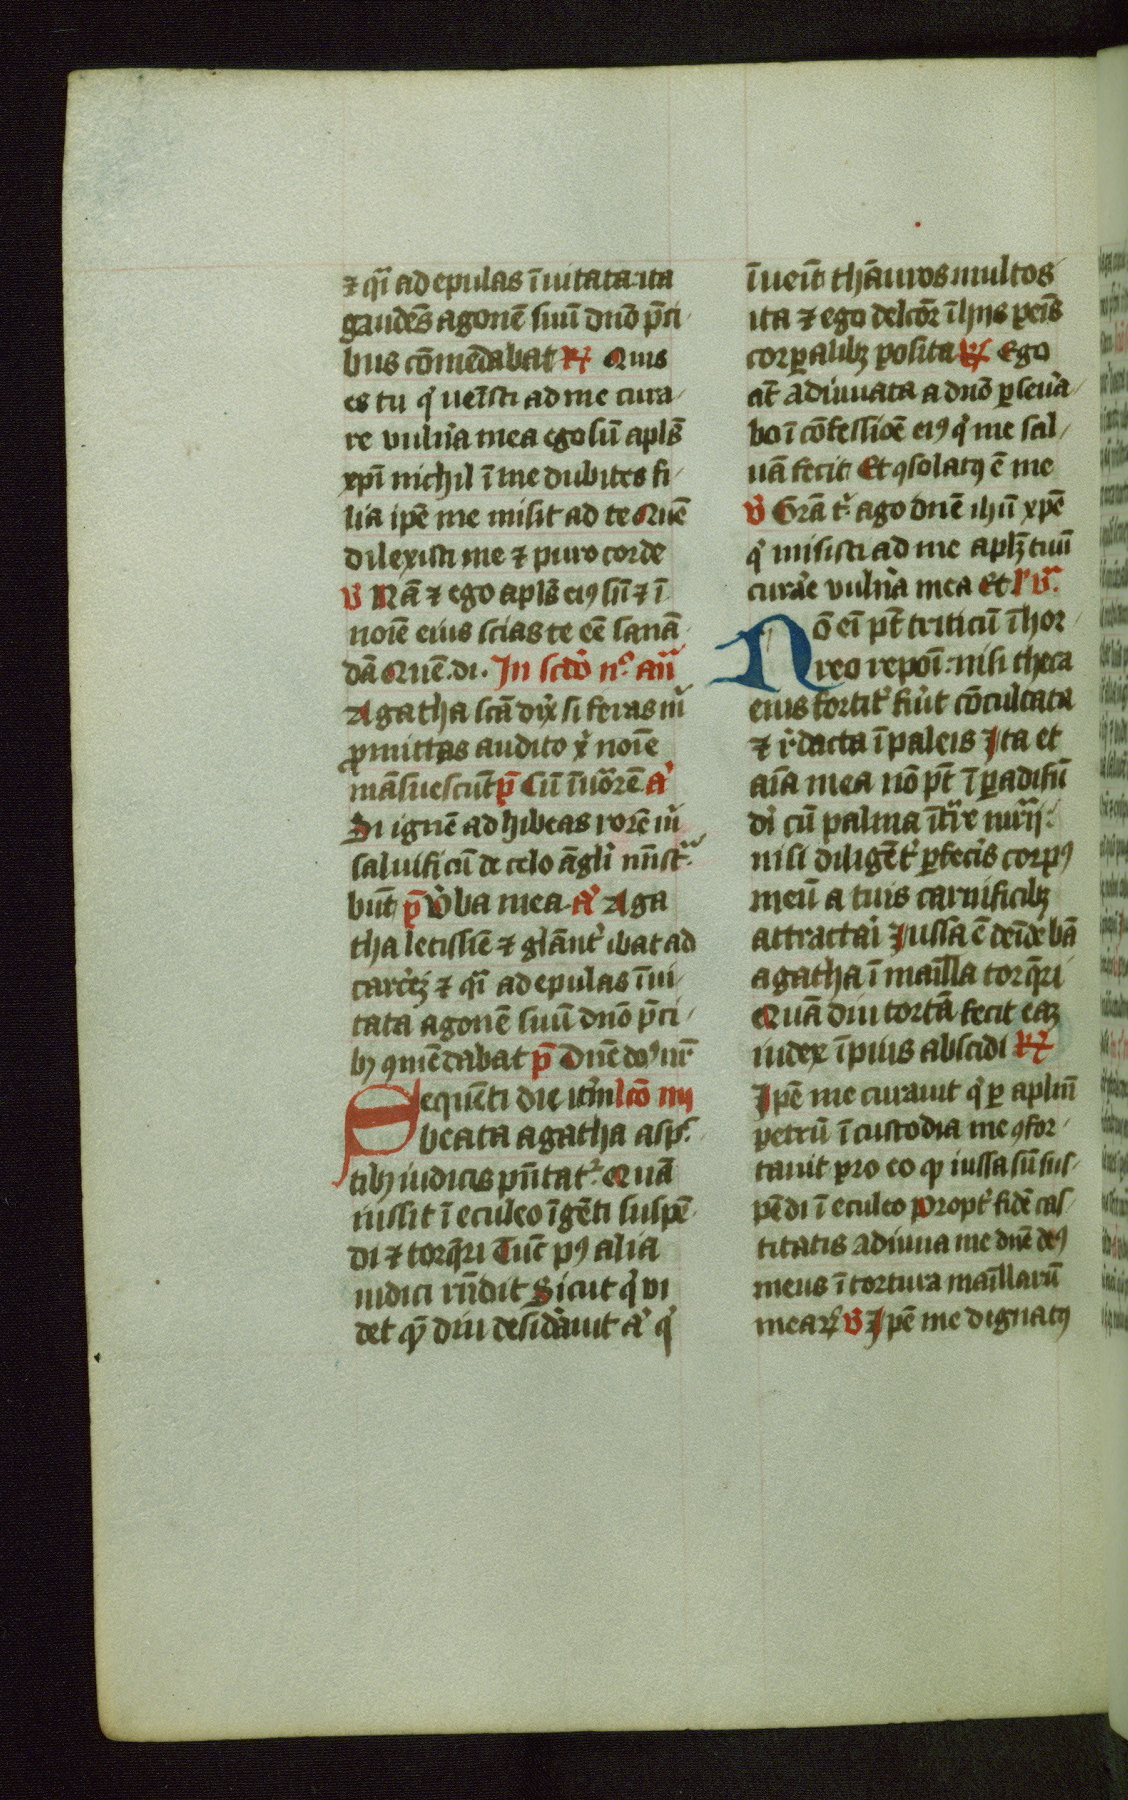 ⁊ q̄si ad epulas īuitata ita
gaudēs agonē suū dn̄o p̄ci
bus cōmēdabat ℟ Quis
es tu qͥ uenīsti ad me cura
re vuln̄a mea ego sū apl̄s
xp̄i nichil ī me dubites fi
lia ip̄e me misit ad te Quē
dilexisti me ⁊ puro corde
℣ Nā ⁊ ego apl̄s eiꝰ sū ⁊ ī
noīe eius scias te eē sanā
dā Quē. di. In scd̄o nͦ. an̄
Agatha scā dix̄ si feras m̄
ꝓmittas audito x̄ noīe
māsuescūt p̄ Cū īuōrē a͛
Si ignē adhibeas rorē m̄
saluificū de celo āgl̄i mīst̄
būt p̄ v̄ba mea. a͛ Aga
tha letissīe ⁊ glāntʳ ibat ad
carc̄eꝫ ⁊ q̄si ad epulas īui
tata agonē suū dn̄o p̄ci
bꝫ ꝯmēdabat p̄ Dn̄e doꝰ nr̄
Sequēti die itm̄ lc̄o iiij
beata agatha aspc̄
tibꝫ iudicis pn̄tatʳ. Quā
iussit ī eculeo īgēti suspē
di ⁊ torq̄ri Tūc pꝰ alia
iudici rn̄dit Sicut qͥ vi
det qꝫ diu desid̄auit a͛ qͥ
īueīt thāuros multos
ita ⁊ ego delc̄or ī hijs peīs
corꝑalibꝫ posita ℟ Ego
at̄ adiuuata a dn̄o ꝑseūa
bo ī cōfessiōe eiꝰ qͥ me sal
uā fecit Et ꝯsolatꝰ ē me
℣ Grā tͥ. ago dn̄e ihū xp̄e
qͥ misisti ad me aplm̄ tuū
curāe vuln̄a mea Et
Nō eī pt̄ triticū ī hor
reo repoī. nisi theca
eius fortitʳ fūit cōculcata
⁊ r̄dacta ī paleis Ita et
aīa mea nō pt̄ ī ꝑadisū
dī cū palma
nisi diligētʳ ꝑfecīs corpꝰ
meū a tuis carnificibꝫ
attractāi Iussa ē deīde bā
agatha ī maīlla torq̄ri
Quā diu tortā fecit eaꝫ
iudex īpius abscidi ℟
Ipē me curauit qͥ ꝑ aplm̄
petrū ī custodia me ꝯfor
tauit pro eo qꝫ iussa sū sus
pēdi ī eculeo proptʳ fidē cas
titatis adiuua me dn̄e deꝰ
meus ī tortura maīllarū
meaꝝ ℣ Ipē me dignatꝰ